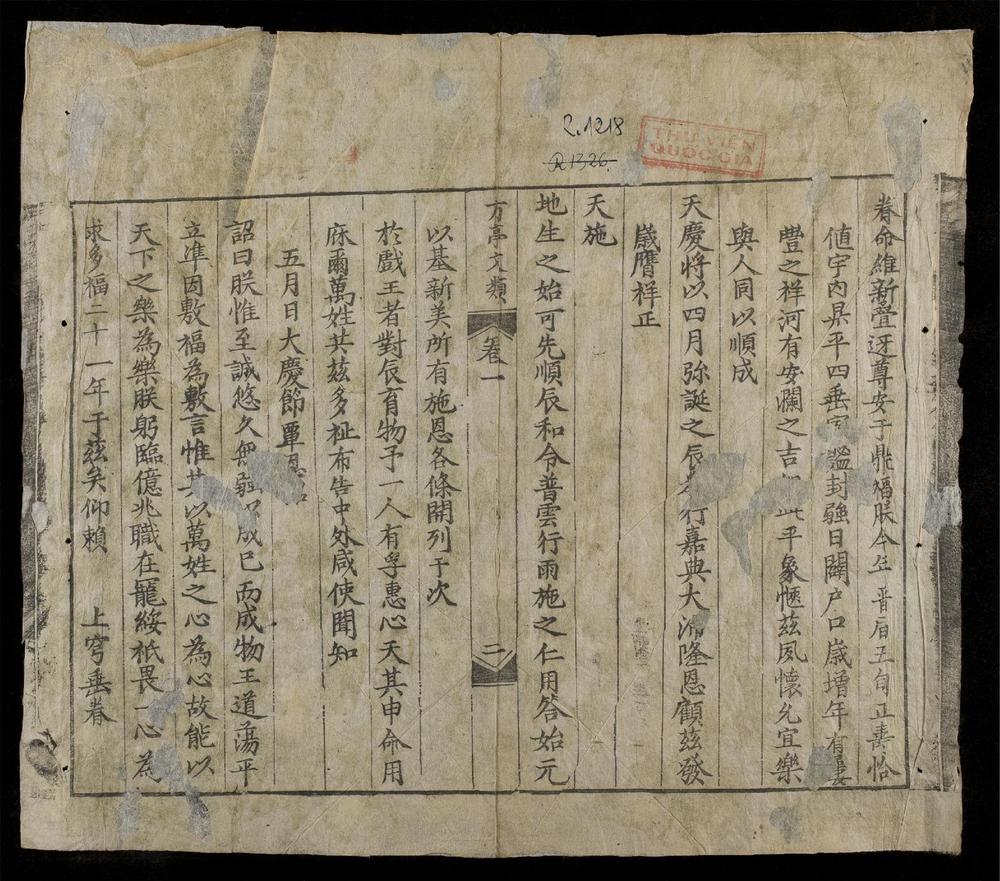 R.1218
R1326
THƯ VIỆN
QUỐC GIA
眷命維新疊迓尊安于鼎福朕今年晋届五旬正壽恰
值宇内杲平四垂寧謐封疆日闢户口歲增年有屢
豐之祥河有安瀾之吉平象愜茲夙懷允宜樂
與人同以順成
天慶將以四月弥誕之辰行嘉典大沛隆恩顧茲發
歲膺祥正
天施
地生之始可先順辰和令普雲行雨施之仁用答始元
方亭文類 卷一 二
以基新美所有施恩各條開列于次
於戲王者對辰育物予一人有孚惠心天其申命用
庥爾萬姓共茲多祉布告中外咸使聞知
五月日大慶節覃恩詔
詔曰朕惟至誠悠久無疆成己而成物王道蕩平
立準因敷福為敷言惟其以萬姓之心為心故能以
天下之樂為樂朕躬臨億兆職在寵綏祇畏一心為
求多福二十一年于茲矣仰賴 上穹垂眷